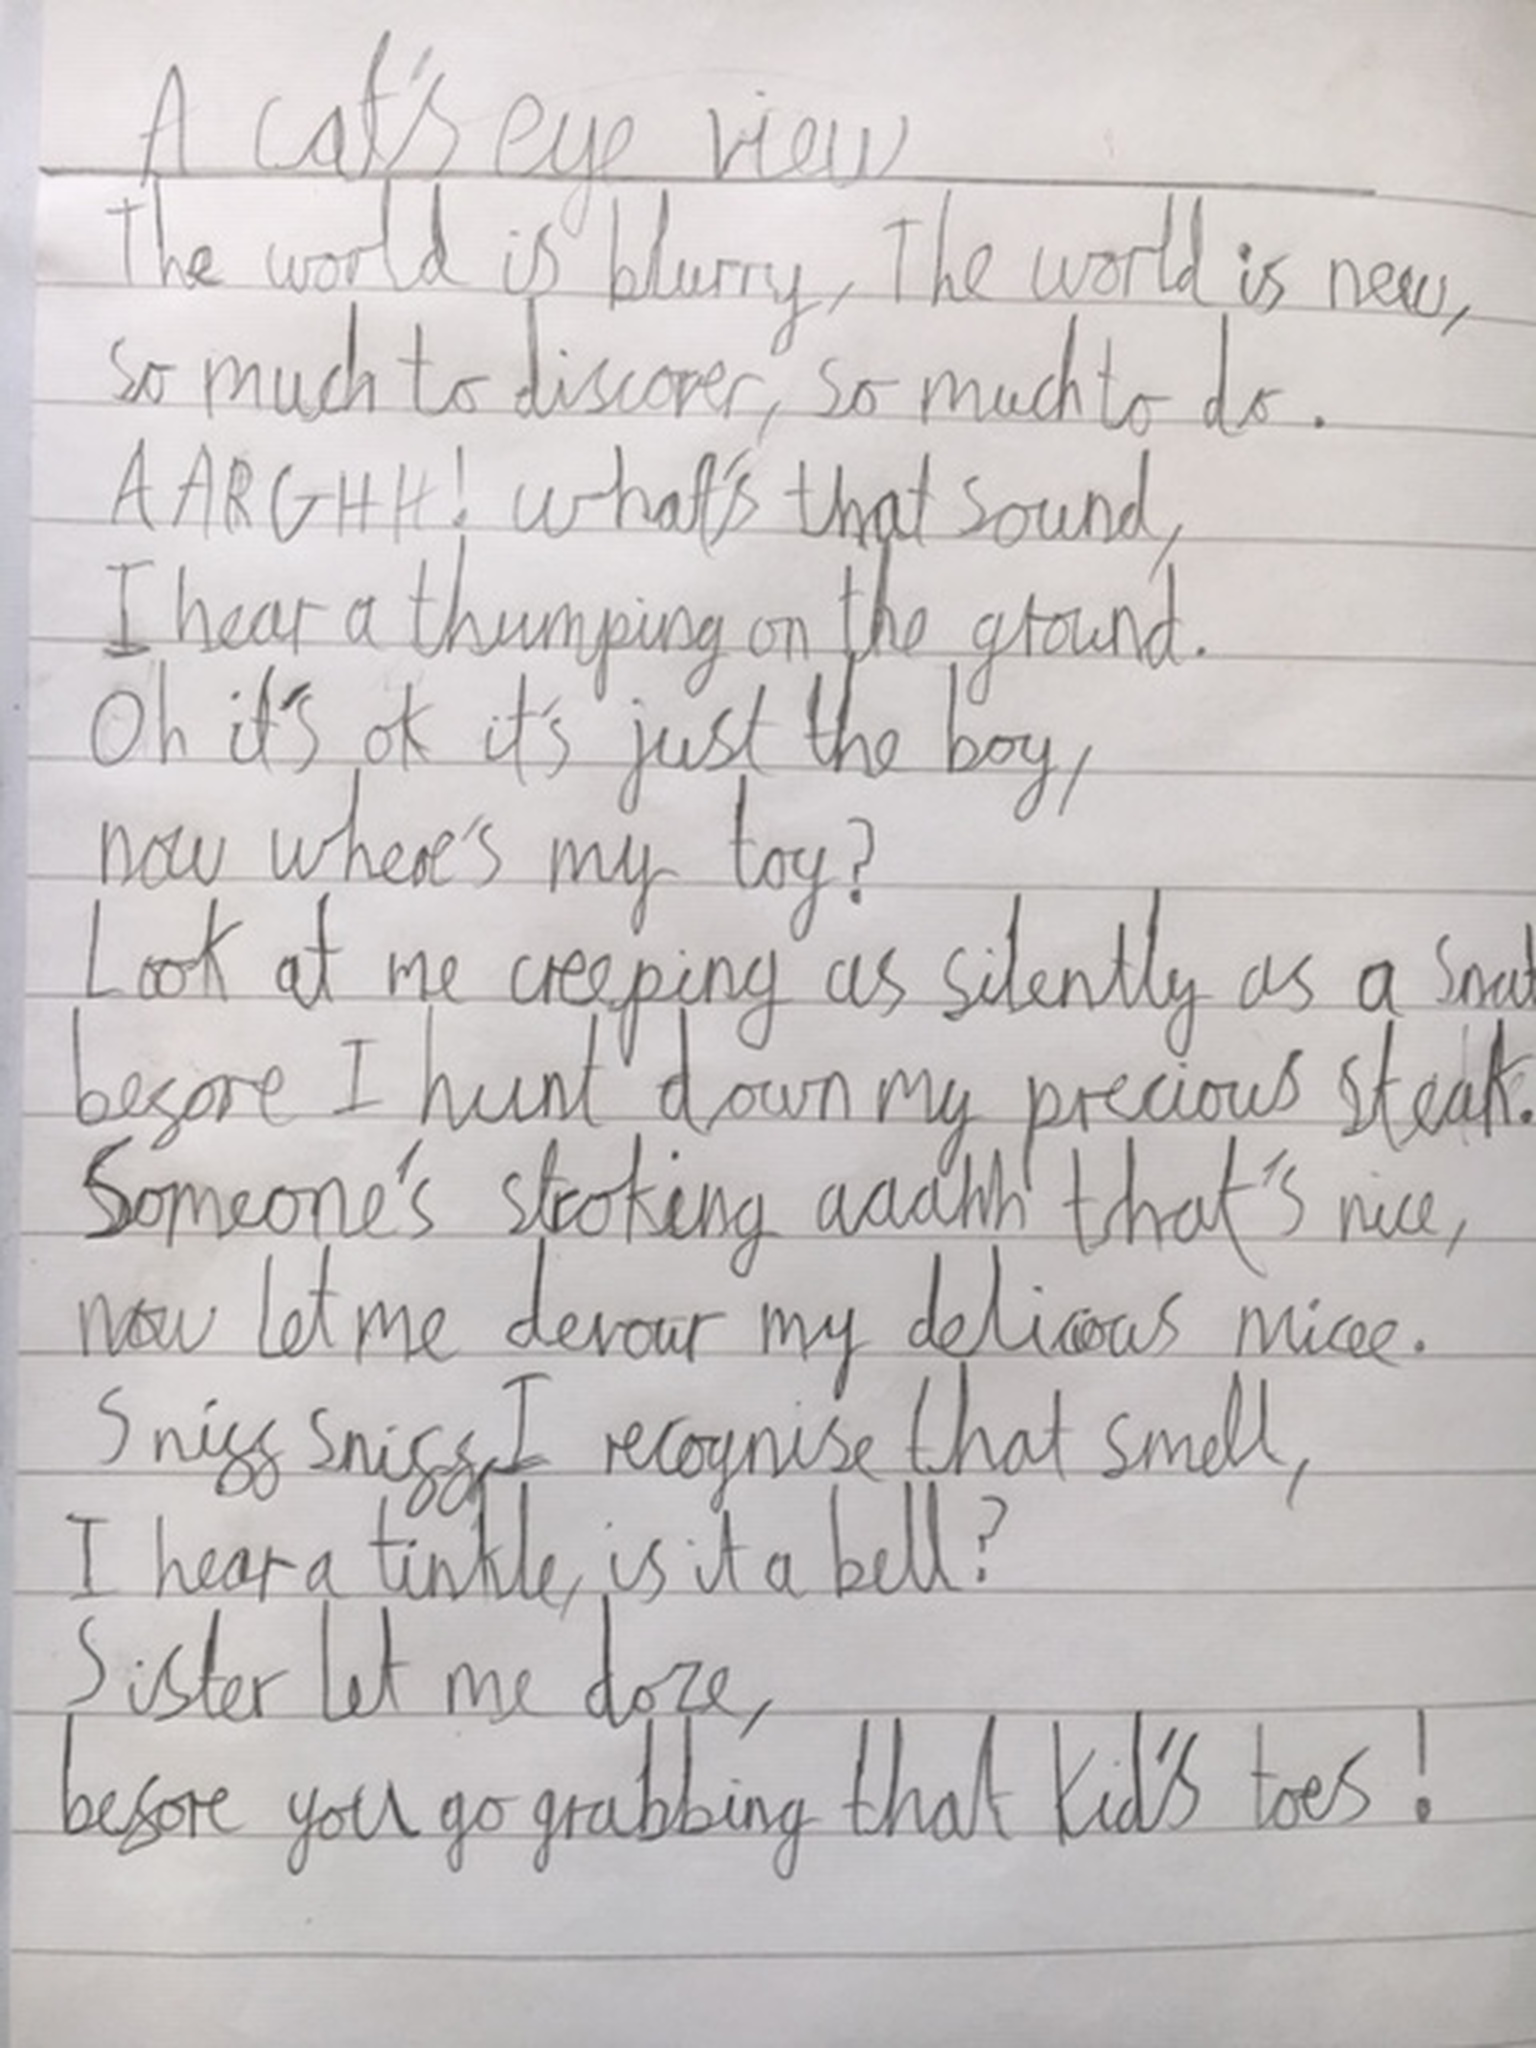 A cat's eye view
The world is blurry, The world is new,
so much to discover, so much to do.
AARGHH! what's that sound,
I hear a thumping on the ground.
Oh it's ok it's just the boy,
now where's my toy?
Look at me creeping as silently as a
before I hunt down my precious steak.
Someone's stroking aaahh that's nice,
now let me devour my delicious micee.
Sniff sniff I recognise that smell,
I hear a tinkle, is it a bell?
Sister let me doze,
before you go grabbing that kid's toes!